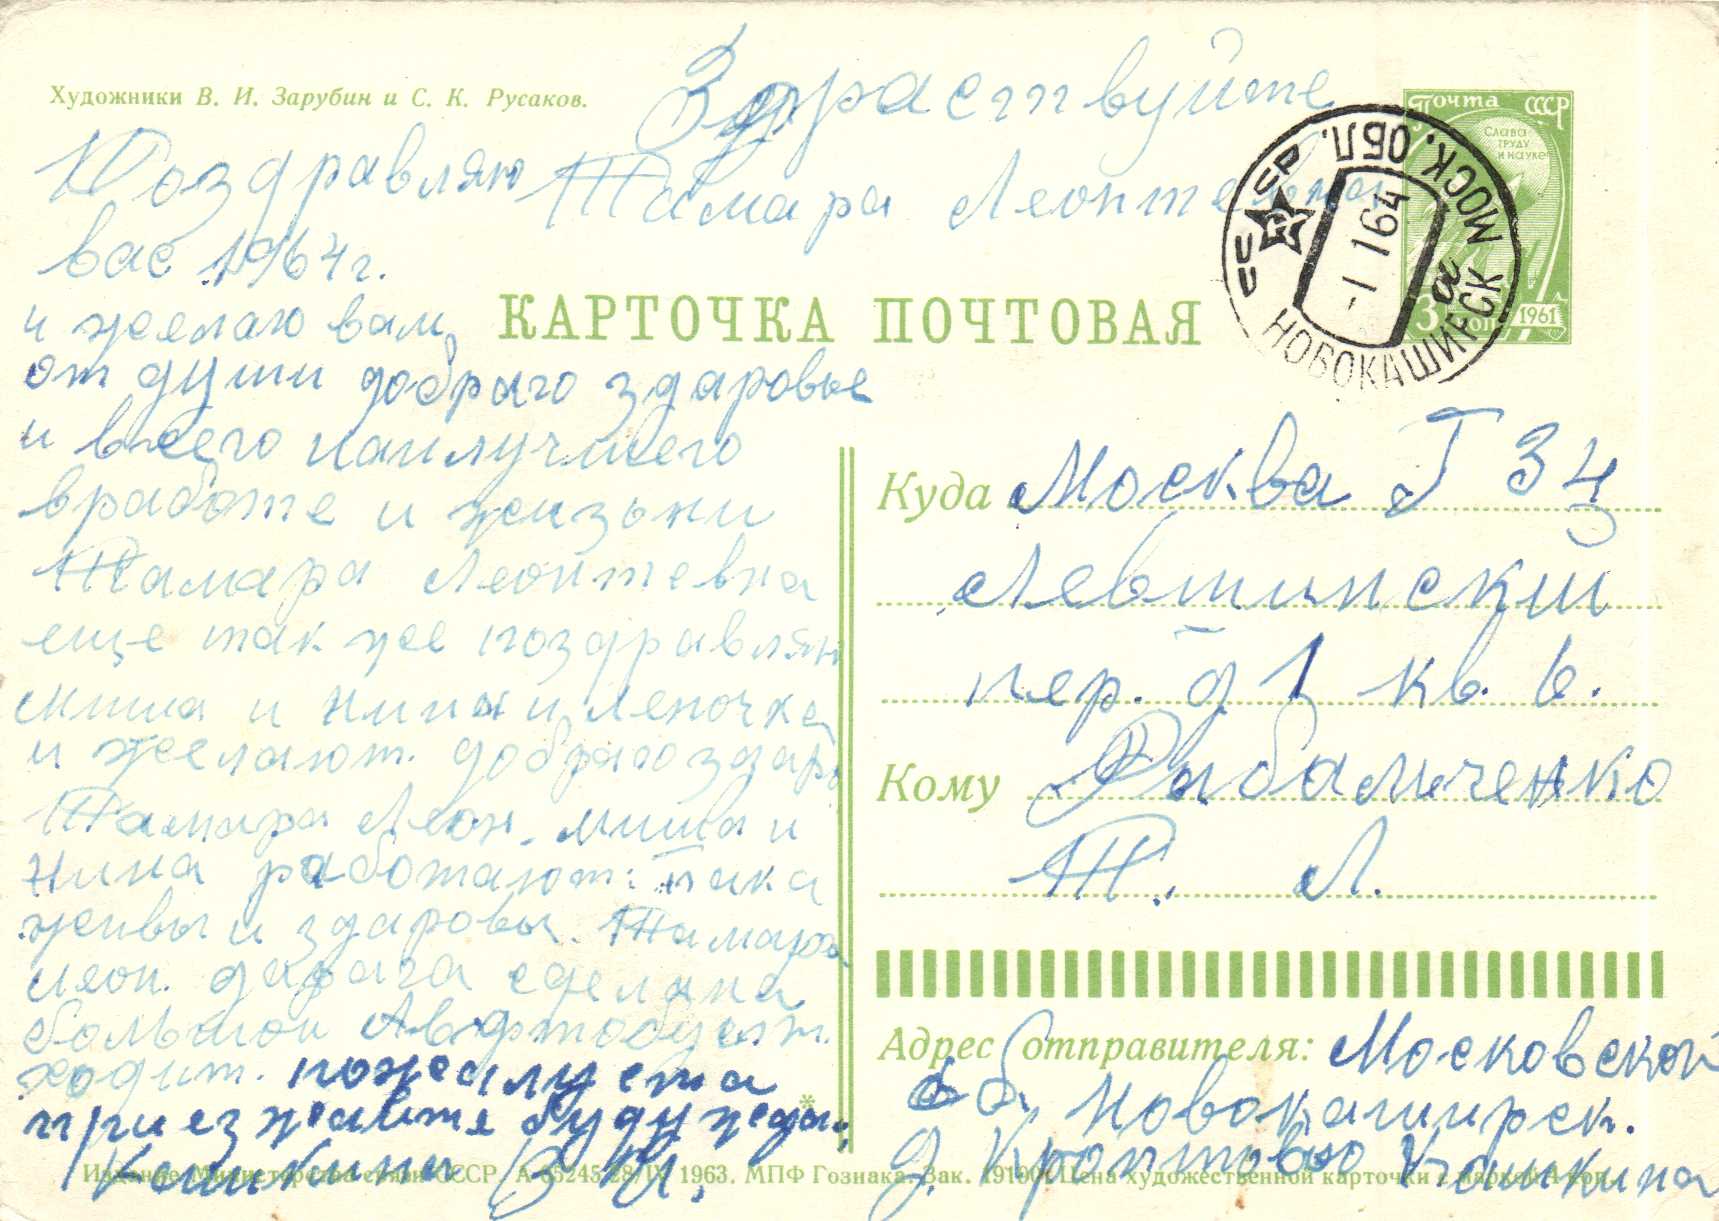 Художники В. И. Зарубин и С. К. Русаков.
Здраствуйте
Поздравляю Тамара Леонтевна
вас 1964 г.
и желаю вам
от души добраго здаровье
и всего наилучшего
вработе и жизьни
Тамара Леонтевна
еще так же поздравляю
миша и нина и леночка
и желают добраго здаро
Тамара Леон. миша и
Нина работают. пака
живы и здаровы. Тамара
леон. дарога сделана
большой Авфтобус
ходит. пожалуста
приезжайте буду жда
Кашкина В И.
КАРТОЧКА ПОЧТОВАЯ
Почта СССР
Слава
труду
и науке
3 коп 1961
СССР МОСК. ОБЛ.
НОВОКАШИРСК
а
-1 164
Куда Москва Г 34
Левшинский
пер. д 1 кв. 6.
Кому Рабамченко
Т. Л.
Адрес отправителя: Московской
обл, Новокаширск.
д. Кропотово Кашкина
Издание Министерства связи СССР. А-05245 28/IX 1963. МПФ Гознака. Зак. 19100. Цена художественной карточки с маркой 4 коп.